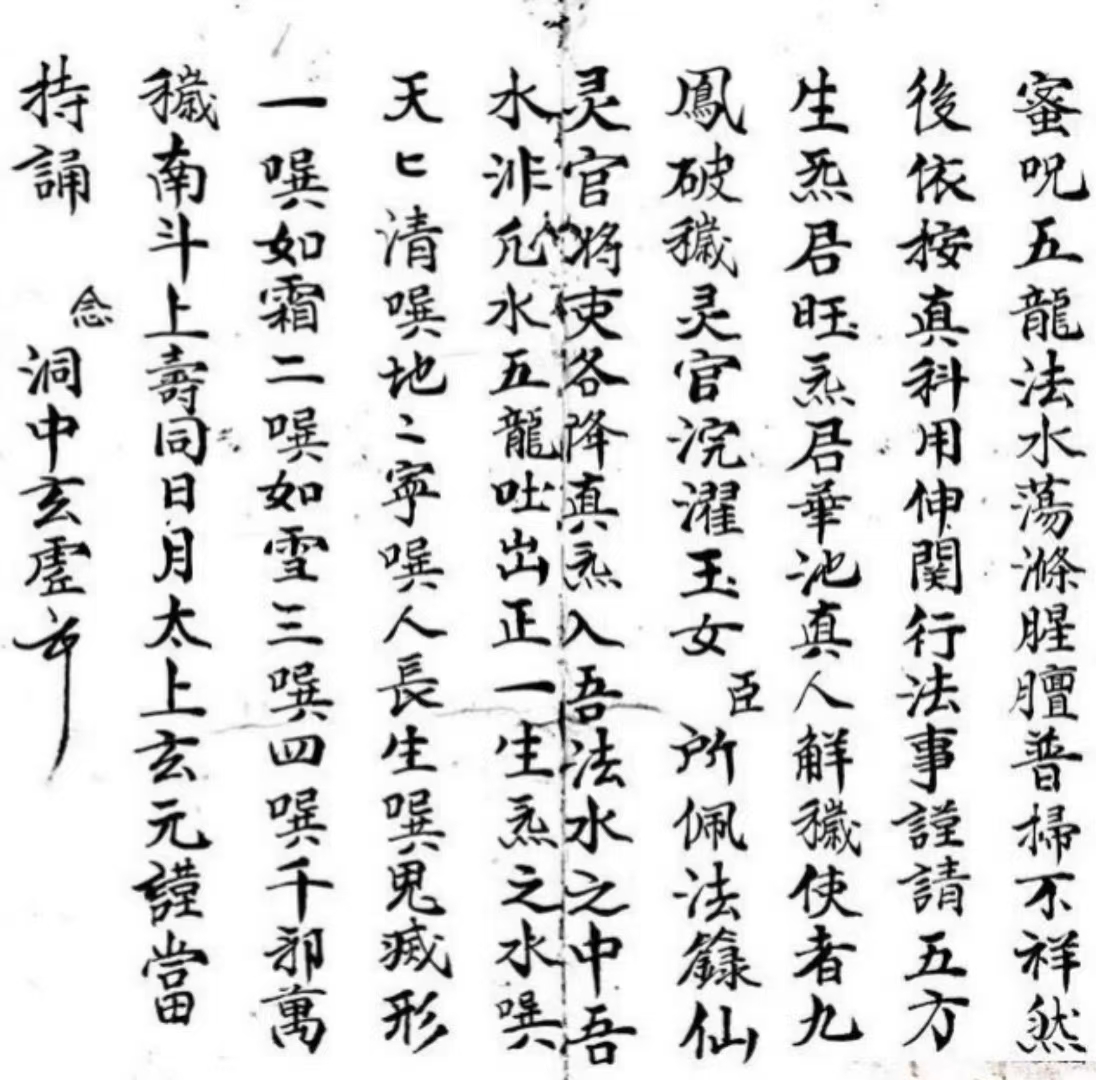 蜜呪五龍法水蕩滌腥膻普掃不祥然
後依按真科用伸関行法事謹請五方
生炁君旺炁君華池真人觧穢使者九
鳳破穢灵官浣濯玉女臣所佩法籙仙
灵官将吏各降真炁入吾法水之中吾
水非凢水五龍吐出正一生炁之水噀
天匕清噀地〻寜噀人長生噀鬼滅形
一噀如霜二噀如雪三噀四噀千邪萬
穢南斗上壽同日月太上玄元謹當
持誦 念洞中玄虚